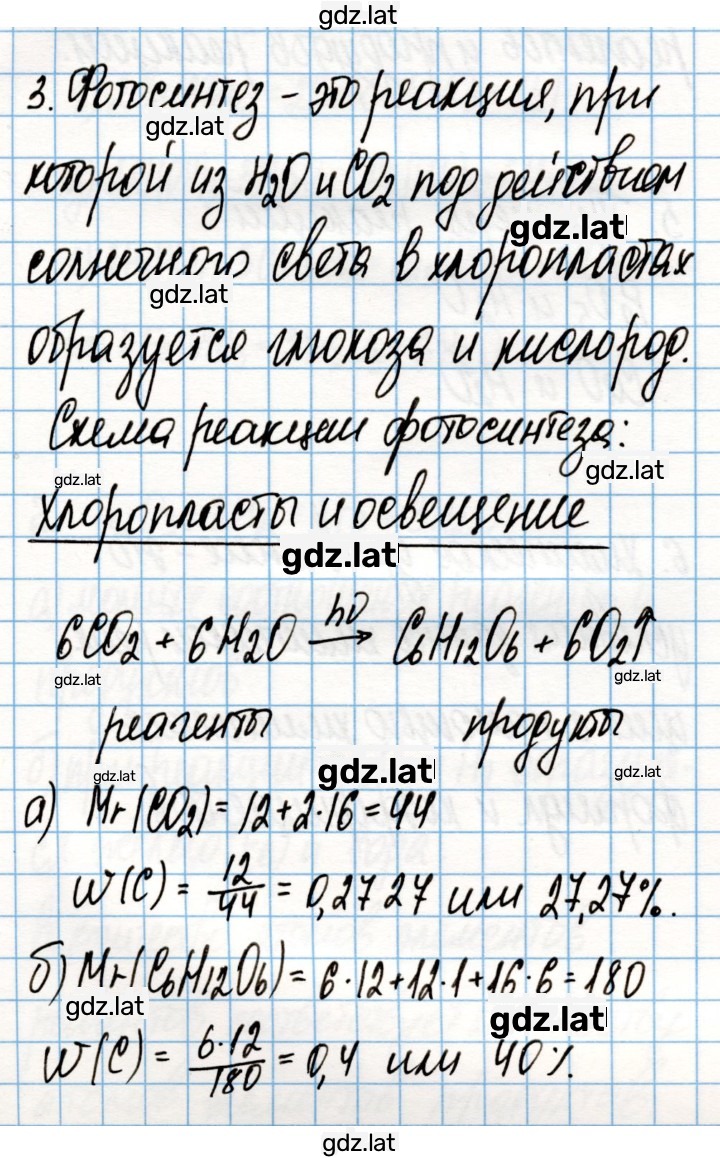 gdz.lat
3. Фотосинтез - это реакция, при
gdz.lat
которой из H2O и CO2 под действием
gdz.lat
солнечного света в хлоропластах
gdz.lat
образуется глюкоза и кислород.
Схема реакции фотосинтеза:
gdz.lat
gdz.lat
Хлоропласты и освещение
gdz.lat
6CO2 + 6H2O hν→ C6H12O6 + 6O2↑
gdz.lat gdz.lat
реагенты продукты
gdz.lat gdz.lat gdz.lat
а) Mr(CO2) = 12+2·16 = 44
W(C) = 12/44 = 0,2727 или 27,27%.
б) Mr(C6H12O6) = 6·12+12·1+16·6 = 180
gdz.lat gdz.lat
W(C) = 6·12/180 = 0,4 или 40%.
gdz.lat